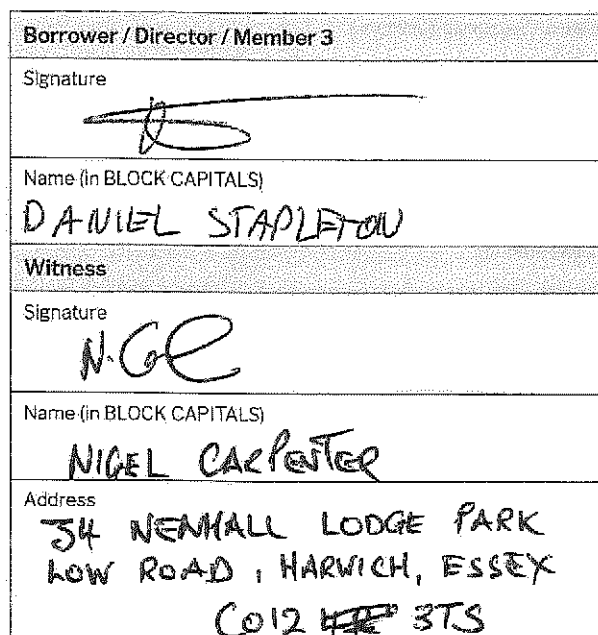 Borrower / Director / Member 3
Signature
Name (in BLOCK CAPITALS)
DANIEL STAPLETON
Witness
Signature
Name (in BLOCK CAPITALS)
NIGEL CARPENTER
Address
34 NEWHALL LODGE PARK
LOW ROAD, HARWICH, ESSEX
CO12 3TS